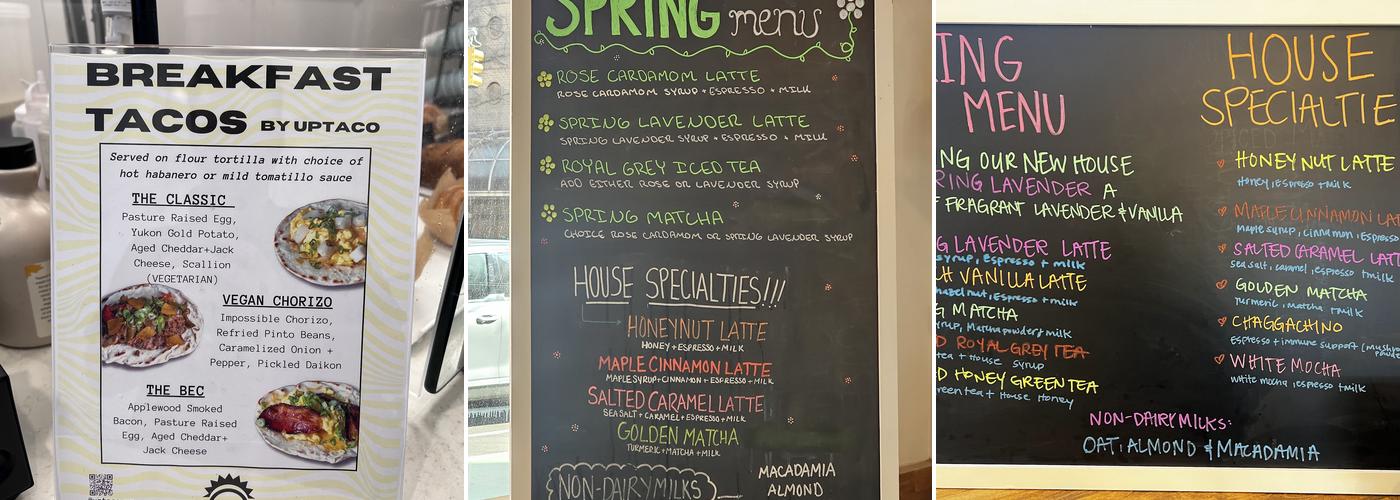 BREAKFAST
TACOS BY UPTACO
Served on flour tortilla with choice of
hot habanero or mild tomatillo sauce
THE CLASSIC
Pasture Raised Egg,
Yukon Gold Potato,
Aged Cheddar+Jack
Cheese, Scallion
(VEGETARIAN)
VEGAN CHORIZO
Impossible Chorizo,
Refried Pinto Beans,
Caramelized Onion +
Pepper, Pickled Daikon
THE BEC
Applewood Smoked
Bacon, Pasture Raised
Egg, Aged Cheddar+
Jack Cheese
SPRING menu
ROSE CARDAMOM LATTE
ROSE CARDAMOM SYRUP + ESPRESSO + MILK
SPRING LAVENDER LATTE
SPRING LAVENDER SYRUP + ESPRESSO + MILK
ROYAL GREY ICED TEA
ADD EITHER ROSE OR LAVENDER SYRUP
SPRING MATCHA
CHOICE ROSE CARDAMOM OR SPRING LAVENDER SYRUP
HOUSE SPECIALTIES!!!
HONEYNUT LATTE
HONEY + ESPRESSO + MILK
MAPLE CINNAMON LATTE
MAPLE SYRUP + CINNAMON + ESPRESSO + MILK
SALTED CARAMEL LATTE
SEA SALT + CARAMEL + ESPRESSO + MILK
GOLDEN MATCHA
TURMERIC + MATCHA + MILK
NON-DAIRY MILKS
MACADAMIA
ALMOND
ING
MENU
NG OUR NEW HOUSE
RING LAVENDER A
F FRAGRANT LAVENDER & VANILLA
G LAVENDER LATTE
syrup, Espresso + milk
CH VANILLA LATTE
hazelnut, Espresso + milk
G MATCHA
yrup, Matcha powder + milk
D ROYAL GREY TEA
tea + House syrup
D HONEY GREEN TEA
reen tea + House Honey
HOUSE
SPECIALTIE
HONEY NUT LATTE
Honey, espresso + milk
MAPLE CINNAMON LAT
Maple syrup, cinnamon, Espresso
SALTED CARAMEL LATT
sea salt, caramel, espresso + milk
GOLDEN MATCHA
Turmeric, matcha + milk
CHAGGACHINO
Espresso + immune support (mushro
WHITE MOCHA
white mocha, espresso + milk
NON-DAIRY MILKS:
OAT, ALMOND & MACADAMIA